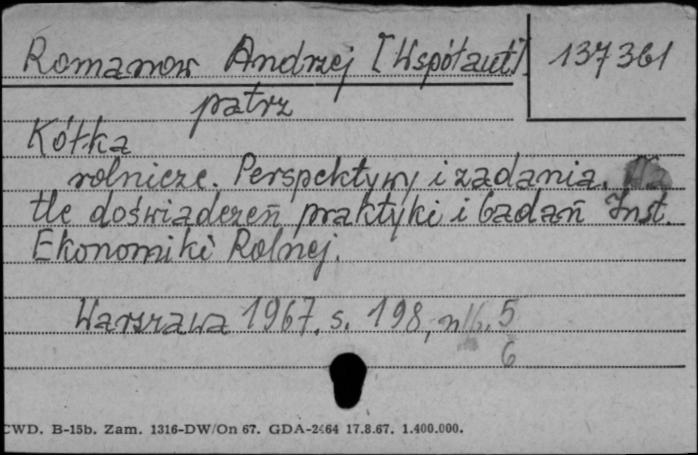 Romanow Andrzej [Współaut] 137361
patrz
Kółka
rolnicze. Perspektywy i zadania. Na
tle doświadczeń praktyki i badań Inst.
Ekonomiki Rolnej.
Warszawa 1967. s. 198, nlb. 5
6
CWD. B-15b. Zam. 1316-DW/On 67. GDA-2464 17.8.67. 1.400.000.